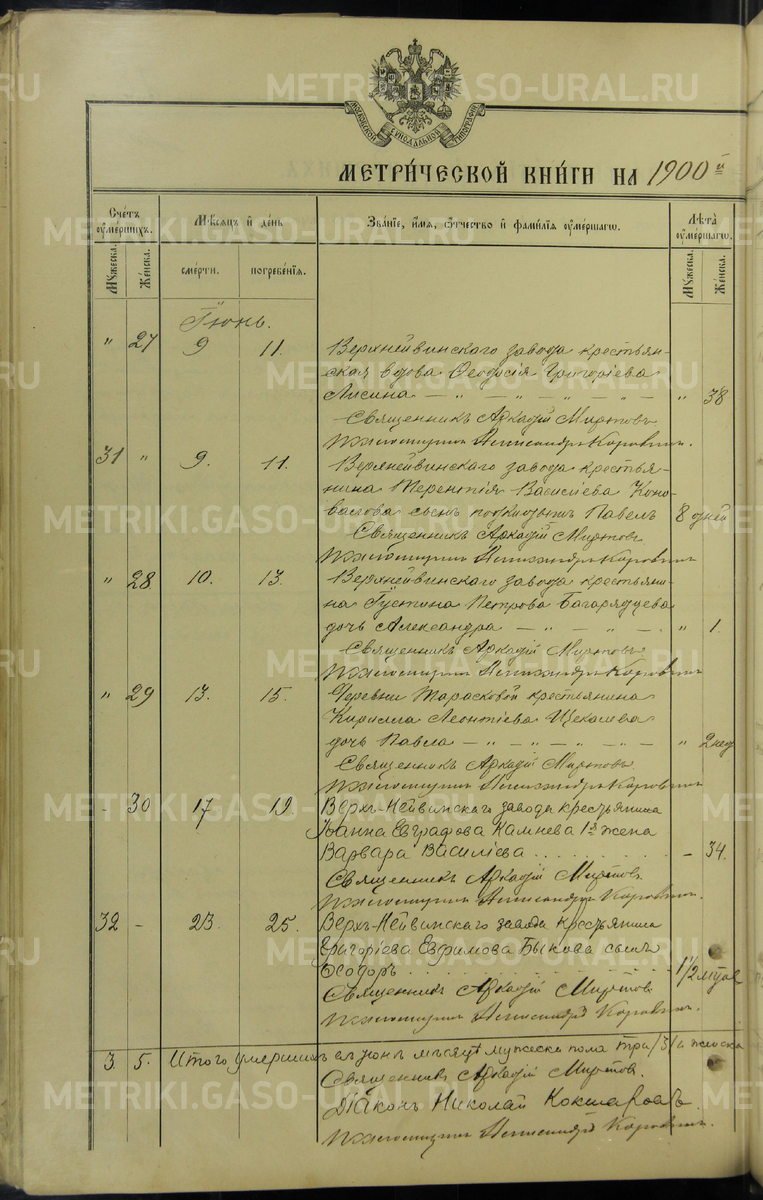 МОСКОВСКОЙ СѴНОДАЛЬНОЙ ТИПОГРАФІИ
МЕТРИ́ЧЕСКОЙ КНИ́ГИ НА 1900 й
Счетъ ᲂумершихъ. Мѣсяцъ и день Званіе, имя, ѻтчество и фамилія ᲂумершагѡ. Лѣта ᲂумершагѡ.
Мꙋжеска. Женска. смерти. погребенія. Мꙋжеска. Женска.
Іюнь.
" 27 9 11. Верхнейвинскаго завода крестьян-
ская вдова Ѳеодосія Григоріева
Лисина — " — " — " — " — " 38
Священникъ Аркадій Миртовъ
Псаломщикъ Александръ Коровинъ.
31 " 9. 11. Верхнейвинскаго завода крестья-
нина Терентія Василіева Коно-
валова сынъ подкидышъ Павелъ 8 дней
Священникъ Аркадій Миртовъ
Псаломщикъ Александръ Коровинъ
" 28 10. 13. Верхнейвинскаго завода крестьяни-
на Іустина Петрова Багарядцева
дочь Александра — " — " — " — " 1.
Священникъ Аркадій Миртовъ
Псаломщикъ Александръ Коровинъ
" 29 13. 15. Деревни Тарасковой крестьянина
Кирилла Леонтіева Щекалева
дочь Павла — " — " — " — " 2 нед
Священникъ Аркадій Миртовъ
Псаломщикъ Александръ Коровинъ
- 30 17 19. Верхъ-Нейвинскаго завода крестьянина
Іоанна Евграфова Камнева 1я жена
Варвара Василіева . . . . . . . — 34.
Священникъ Аркадій Миртовъ
Псаломщикъ Александръ Коровинъ.
32 - 23. 25. Верхъ-Нейвинскаго завода крестьянина
Григоріева Евфимова Быкова сынъ
Ѳеодоръ . . . . . . . . . . 1 1/2 мѣсяц
Священникъ Аркадій Миртовъ
Псаломщикъ Александръ Коровинъ.
3. 5. Итого умершихъ въ Іюнѣ мѣсяцѣ мужеска пола три /3/ и женска
Священникъ Аркадій Миртовъ.
Діаконъ Николай Кокшаровъ.
Псаломщикъ Александръ Коровинъ.
METRIKI.GASO-URAL.RU